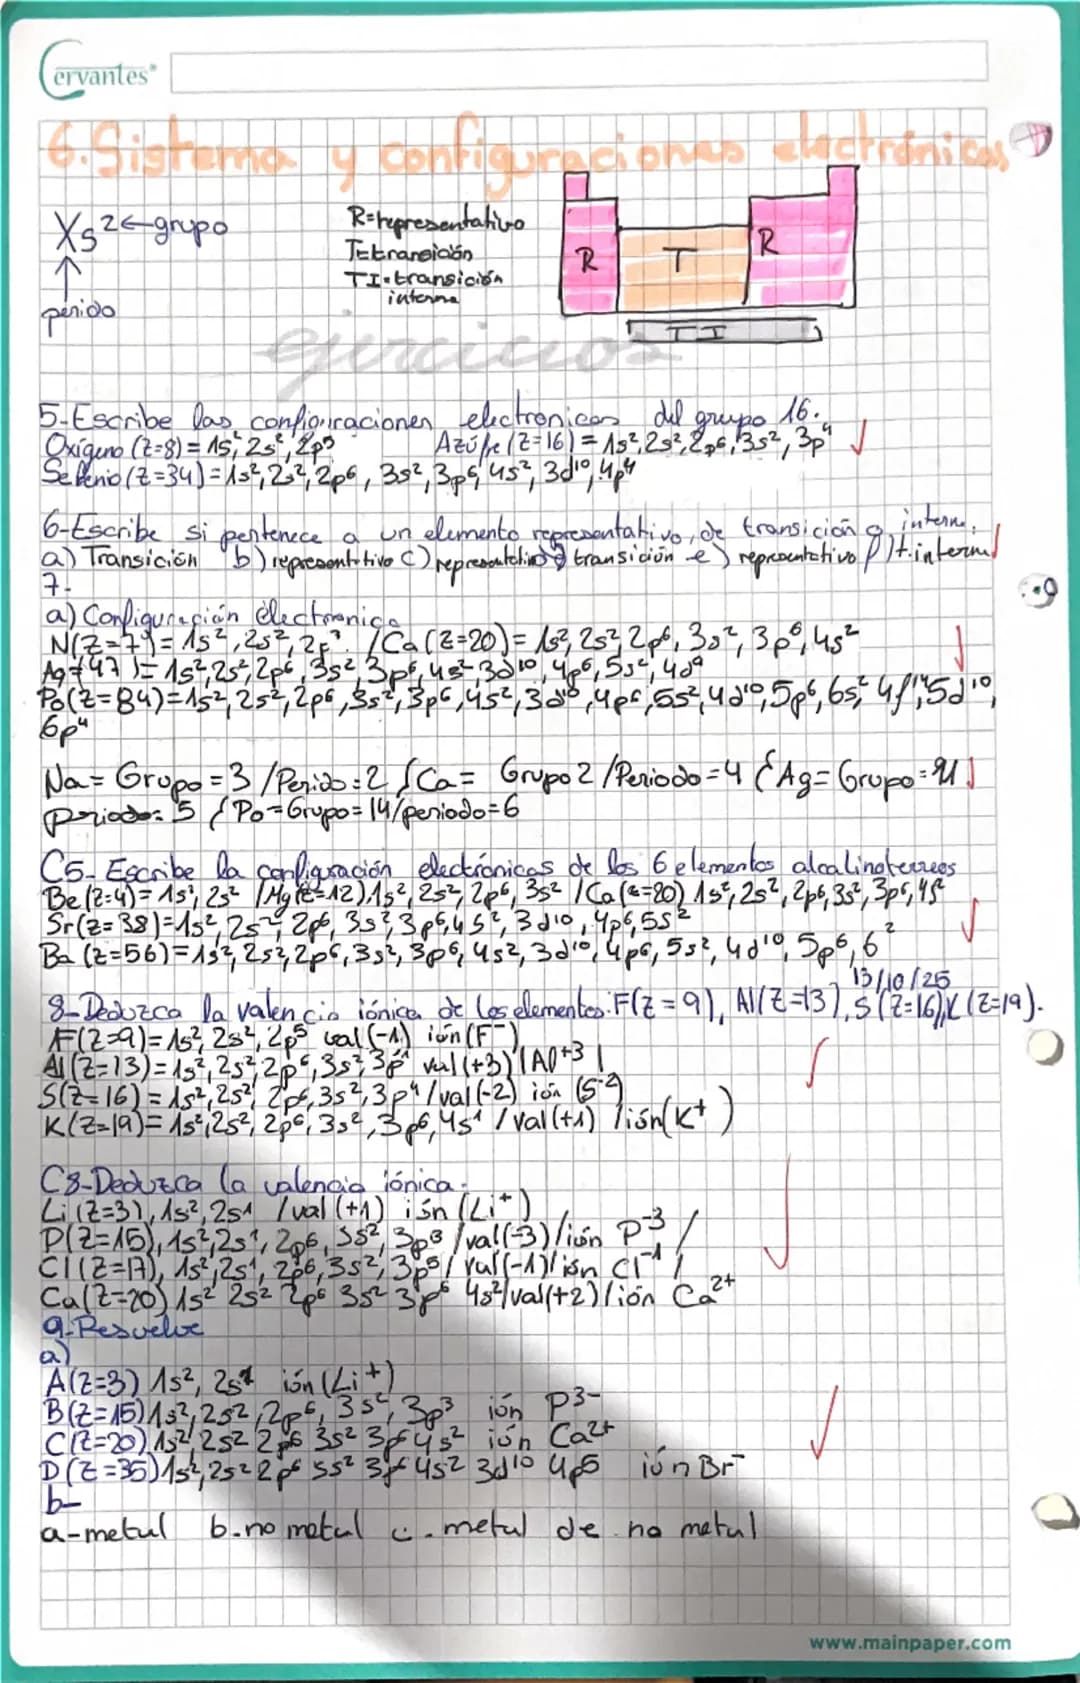 Cervantes®
6. Sistema y configuraciones electrónicas
Xs² ← grupo
pérido
R=representativo
T=transición
TI=transición
interna
R
T
R
TI
ejercicios
5-Escribe las configuraciones electronicas del grupo 16.
Oxígeno (Z=8) = 1s², 2s², 2p⁵ Azúfre (Z=16) = 1s², 2s², 2p⁶, 3s², 3p⁴
Selenio (Z=34) = 1s², 2s², 2p⁶, 3s², 3p⁶, 4s², 3d¹⁰, 4p⁴
6-Escribe si pertenece a un elemento representativo, de transición o interna.
a) Transición b) representativo c) representativo d) transición e) representativo f) t.interna
7-
a) Configuración electronica
N(Z=7) = 1s², 2s², 2p³. / Ca (Z=20) = 1s², 2s², 2p⁶, 3s², 3p⁶, 4s²
Ag (47) = 1s², 2s², 2p⁶, 3s², 3p⁶, 4s², 3d¹⁰, 4p⁶, 5s², 4d⁹
Po(Z=84) = 1s², 2s², 2p⁶, 3s², 3p⁶, 4s², 3d¹⁰, 4p⁶, 5s², 4d¹⁰, 5p⁶, 6s², 4f¹⁴, 5d¹⁰,
6p⁴
Na= Grupo = 3 /Perido=2 { Ca= Grupo 2 /Periodo=4 { Ag= Grupo=11
periodo= 5 { Po=Grupo= 14/periodo=6
C5- Escribe la configuración electrónicas de los 6 elementos alcalinoterreos
Be (Z=4) = 1s², 2s² / Mg (Z=12), 1s², 2s², 2p⁶, 3s² / Ca (Z=20) 1s², 2s², 2p⁶, 3s², 3p⁶, 4s²
Sr (Z=38) = 1s², 2s², 2p⁶, 3s², 3p⁶, 4s², 3d¹⁰, 4p⁶, 5s²
Ba (Z=56) = 1s², 2s², 2p⁶, 3s², 3p⁶, 4s², 3d¹⁰, 4p⁶, 5s², 4d¹⁰, 5p⁶, 6²
13/10/25
8-Deduzca la valencia iónica de los elementos: F(Z=9), Al(Z=13), S(Z=16), K(Z=19).
F(Z=9) = 1s², 2s², 2p⁵ val (-1) ión (F⁻)
Al (Z=13) = 1s², 2s², 2p⁶, 3s², 3p¹ val (+3) (Al⁺³)
S(Z=16) = 1s², 2s², 2p⁶, 3s², 3p⁴ / val (-2) ión (S⁻²)
K(Z=19) = 1s², 2s², 2p⁶, 3s², 3p⁶, 4s¹ / val (+1) / ión (K⁺)
C8-Deduzca la valencia iónica.
Li (Z=3), 1s², 2s¹ /val (+1) ión (Li⁺)
P(Z=15), 1s², 2s², 2p⁶, 3s², 3p³ /val(-3) /ión P⁻³ /
Cl (Z=17), 1s², 2s¹, 2p⁶, 3s², 3p⁵ / val(-1) / ión Cl⁻¹ /
Ca(Z=20) 1s² 2s² 2p⁶ 3s² 3p⁶ 4s² /val(+2) /ión Ca²⁺
9-Resuelve
a)
A(Z=3) 1s², 2s¹ ión (Li⁺)
B(Z=15) 1s², 2s², 2p⁶, 3s², 3p³ ión P³⁻
C(Z=20) 1s², 2s² 2p⁶ 3s² 3p⁶ 4s² ión Ca²⁺
D(Z=35) 1s², 2s² 2p⁶ 3s² 3p⁶ 4s² 3d¹⁰ 4p⁵ ión Br⁻
b-
a-metal b.no metal c.metal de no metal
www.mainpaper.com